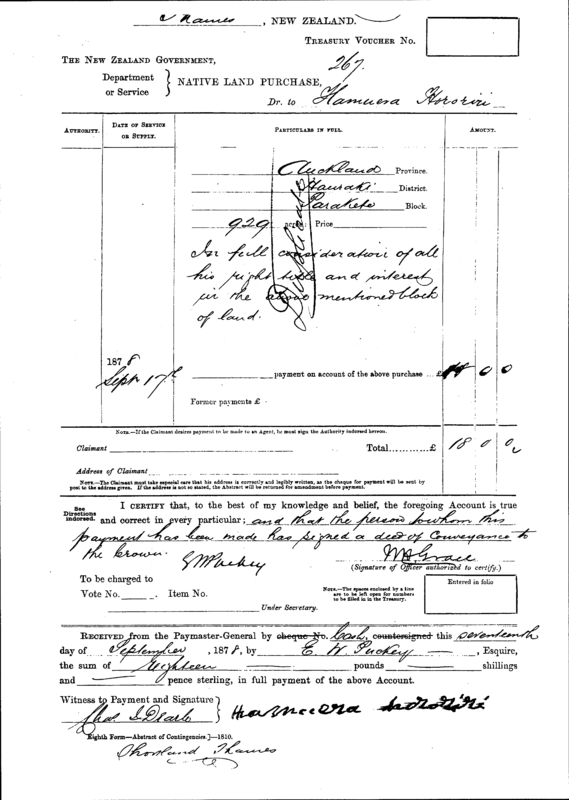 Thames, NEW ZEALAND.
TREASURY VOUCHER NO.
267.
THE NEW ZEALAND GOVERNMENT,
Department or Service } NATIVE LAND PURCHASE,
Dr. to Hamuera Hororiri
AUTHORITY. DATE OF SERVICE OR SUPPLY. PARTICULARS IN FULL. AMOUNT.
Auckland Province.
Hauraki District.
Parakete Block.
929 acres: Price
Duplicate
In full consideration of all
his right title and interest
in the above mentioned block
of land.
1878
Sept 17th payment on account of the above purchase ...£ 18 0 0
Former payments £
NOTE.—If the Claimant desires payment to be made to an Agent, he must sign the Authority indorsed hereon.
Claimant Total...........£ 18 0 0
Address of Claimant
NOTE.—The Claimant must take especial care that his address is correctly and legibly written, as the cheque for payment will be sent by
post to the address given. If the address is not so stated, the Abstract will be returned for amendment before payment.
See Directions indorsed.
I CERTIFY that, to the best of my knowledge and belief, the foregoing Account is true
and correct in every particular; and that the person to whom this
payment has been made has signed a deed of Conveyance to
the Crown. EWPuckey
(Signature of Officer authorized to certify.)
To be charged to
Vote No. . Item No.
NOTE.—The spaces enclosed by a line
are to be left open for numbers
to be filled in in the Treasury.
Entered in folio
Under Secretary.
RECEIVED from the Paymaster-General by cheque No. Cash, countersigned this seventeenth
day of September, 1878, by E. W. Puckey, Esquire,
the sum of Eighteen pounds shillings
and pence sterling, in full payment of the above Account.
Witness to Payment and Signature }
Hamuera Hororiri
Eighth Form—Abstract of Contingencies.]—1810.
Shortland Thames